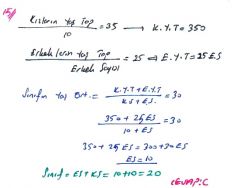 15)
Kızların Yaş Top / 10 = 35 → K.Y.T = 350
Erkeklerin Yaş Top / Erkek Sayısı = 25 ⇒ E.Y.T = 25 ES
Sınıfın Yaş Ort. = K.Y.T + E.Y.T / KS + ES. = 30
350 + 25 ES / 10 + ES = 30
350 + 25 ES = 300 + 30 ES
ES = 10
Sınıf = ES + KS = 10 + 10 = 20
CEVAP: C